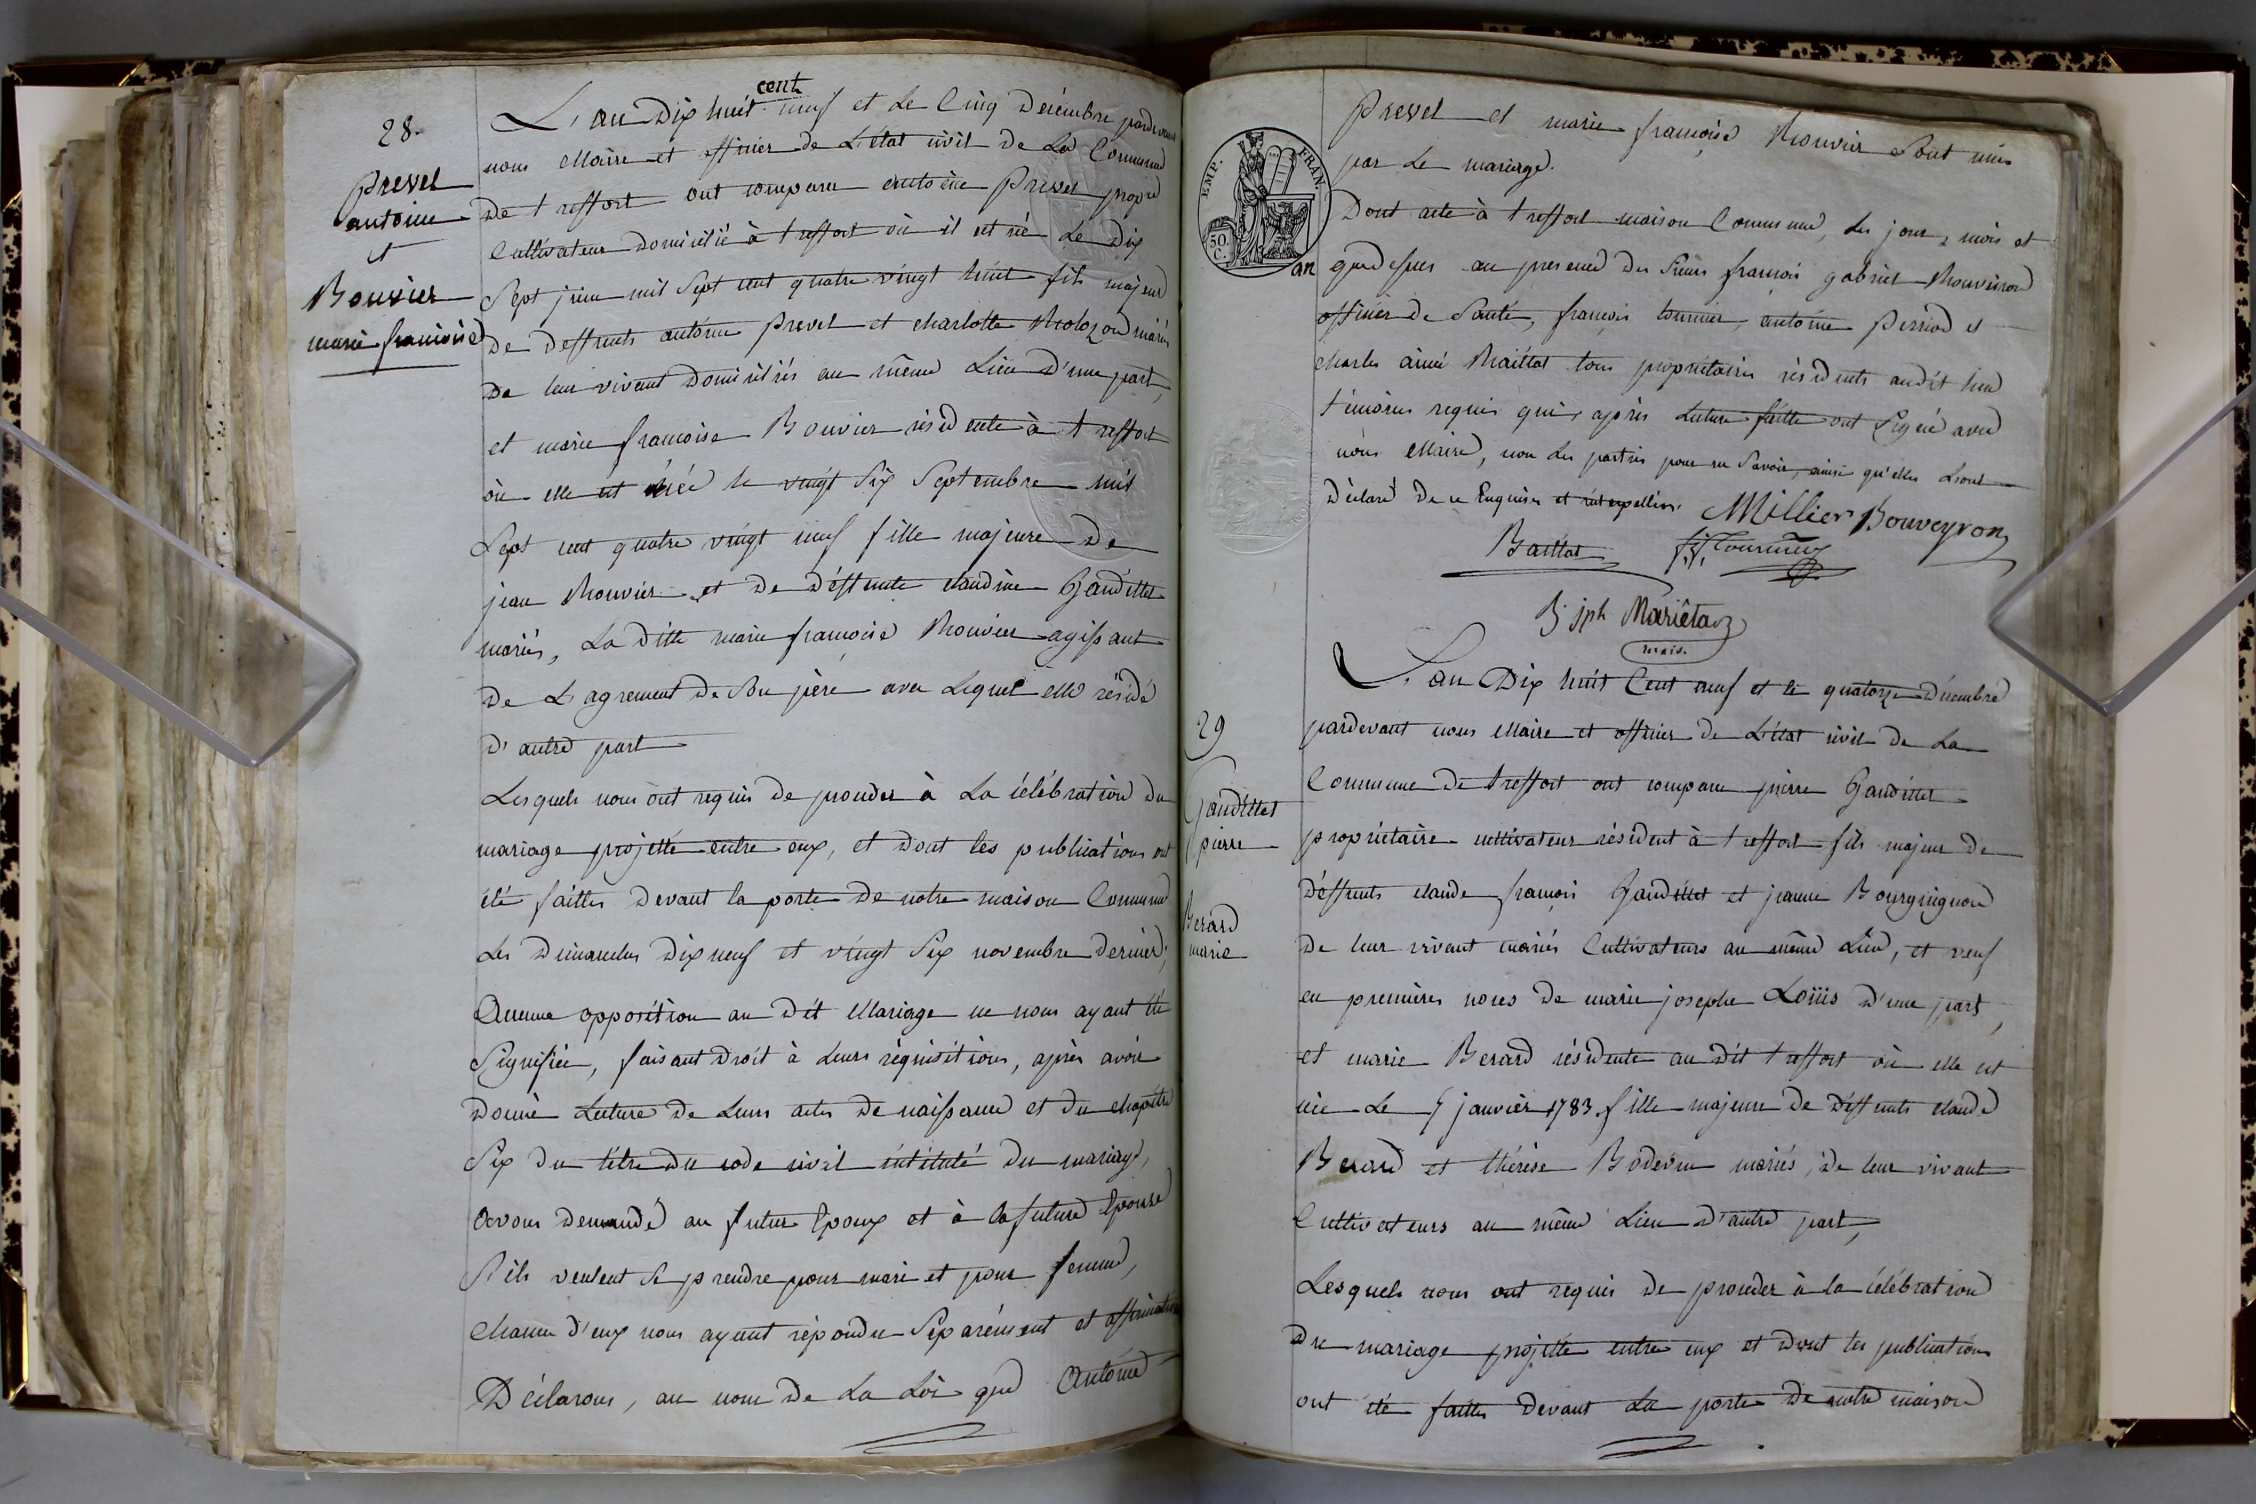 28.
Prevel
antoine
et
Bouvier
marie françoise
cent
L'an Dix huit neuf et Le Cinq Decembre pardevant
nous Maire et officier de L'état civil de La Commune
de treffort ont comparu antoine Prevel propre
Cultivateur domicilié à treffort où il est né Le Dix
Sept juin mil Sept cent quatre vingt huit fils majeur
de deffunts antoine prevel et charlotte mariés
de leur vivant domiciliés au même Lieu d'une part,
et marie françoise Bouvier résidente à treffort
où elle est née le vingt Six Septembre mil
Sept cent quatre vingt neuf fille majeure de
jean Bouvier et de déffunte claudine Gandillet
mariés, La ditte marie françoise Bouvier agissant
de L'agrement de Son père avec Lequel elle réside
d'autre part
Lesquels nous ont requis de proceder à La célébration du
mariage projetté entre eux, et dont les publications ont
été faittes devant la porte de notre maison Commune
Les Dimanches Dix neuf et vingt Six novembre dernier;
Aucune opposition au dit Mariage ne nous ayant été
Signifiée, faisant droit à Leurs réquisitions, après avoir
donné Lecture de Leurs actes de naissance et du chapitre
Six du titre du code civil intitulé du mariage,
Avons demandé au futur Epoux et à la future Epouse
S'ils veulent Se prendre pour mari et pour femme,
chacun d'eux nous ayant répondu Séparément et affirmativement
Déclarons, au nom de La Loi que Antoine
EMP. FRAN.
50.
C.
Prevel et marie françoise Bouvier Sont unis
par Le mariage.
Dont acte à treffort maison Commune, Les jour, mois et
an que dessus en presence des Sieurs françois gabriel Bouveiron
officier de Santé, françois tournier, antoine Perriod et
charles aimé Baillat tous propriétaires résidents audit lieu
témoins requis qui après Lecture faitte ont Signé avec
nous Maire, non Les parties pour ne Savoir, ainsi qu'elles L'ont
déclaré de ce Enquises et interpellées. Millier Bouveyron
Baillat Tournier
B. jph Mariétan
maire.
29
Gandillet
pierre
Berard
marie
L'an Dix huit Cent neuf et le quatorze décembre
pardevant nous Maire et officier de L'état civil de La
Commune de treffort ont comparu pierre Gandillet
propriétaire cultivateur résident à treffort fils majeur de
déffunts claude françois Gandillet et jeanne Bourguignon
de leur vivant mariés Cultivateurs au même Lieu, et veuf
en premières noces de marie josephe Loüis d'une part,
et marie Berard résidente au dit treffort où elle est
née Le 5 janvier 1783 fille majeure de déffunts claude
Berard et thérèse mariés, de leur vivant
Cultivateurs au même Lieu d'autre part,
Lesquels nous ont requis de proceder à la célébration
du mariage projetté entre eux et dont les publications
ont été faittes devant La porte de notre maison